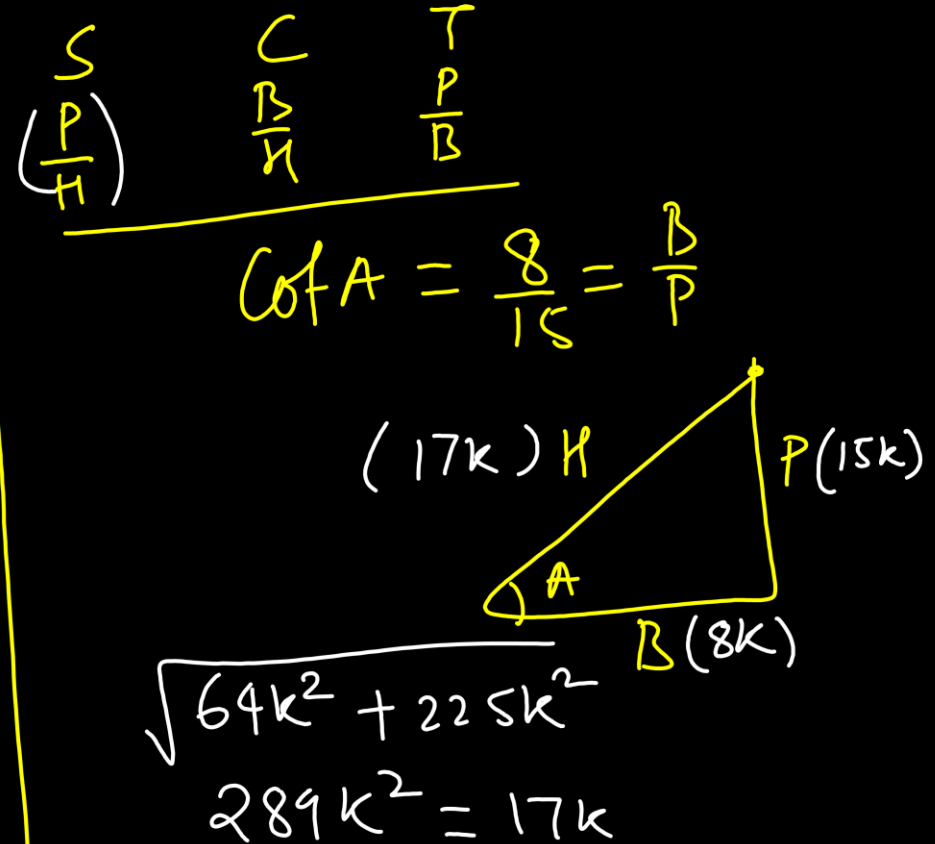 S C T
(P/H) B/H P/B
Cot A = 8/15 = B/P
(17K) H
P (15K)
A
B (8K)
√64K² + 225K²
289K² = 17K